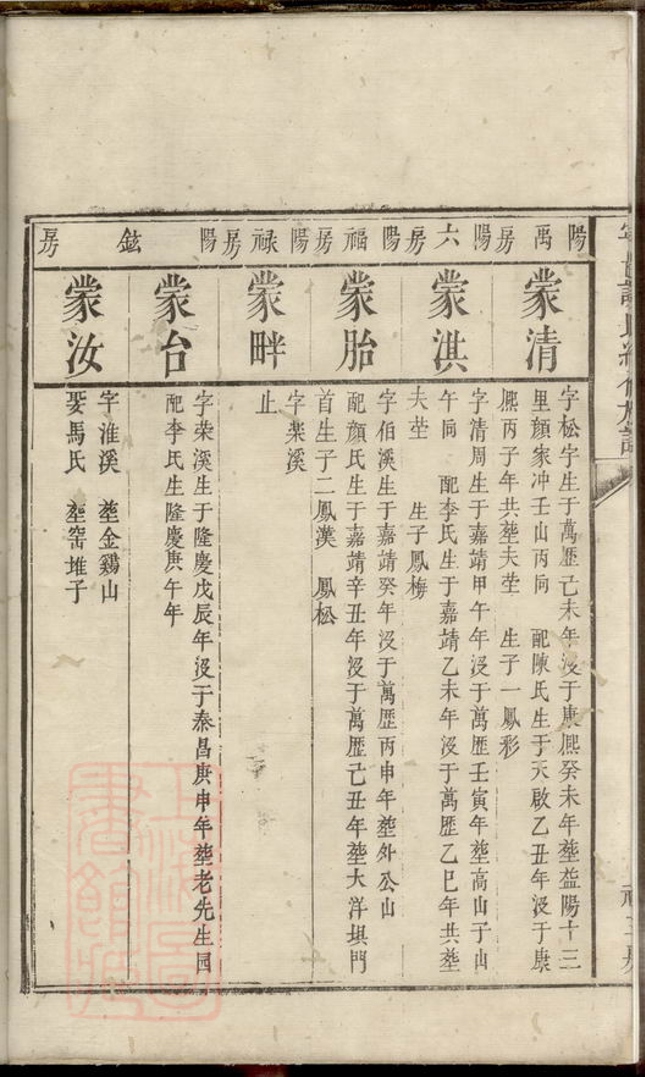 陽禹房
蒙清
字松字生于萬歷己未年沒于康熈癸未年塟益陽十三
里顏家冲壬山丙向　配陳氏生于天啟乙丑年沒于康
熈丙子年共塟夫茔　生子一鳳彩
陽六房
蒙淇
字清周生于嘉靖甲午年沒于萬歷壬寅年塟高山子山
午向　配李氏生于嘉靖乙未年沒于萬歷乙巳年共塟
夫茔　生子鳳梅
陽福房
蒙胎
字伯溪生于嘉靖癸年沒于萬歷丙申年塟外公山
配顏氏生于嘉靖辛丑年沒于萬歷己丑年塟大洋垻門
首生子二鳳漢　鳳松
陽禄房
蒙畔
字業溪
止
陽鉉房
蒙台
字荣溪生于隆慶戊辰年沒于泰昌庚申年塟老先生园
配李氏生隆慶庚午年
蒙汝
字淮溪　塟金鷄山
娶馬氏　塟窑堆子